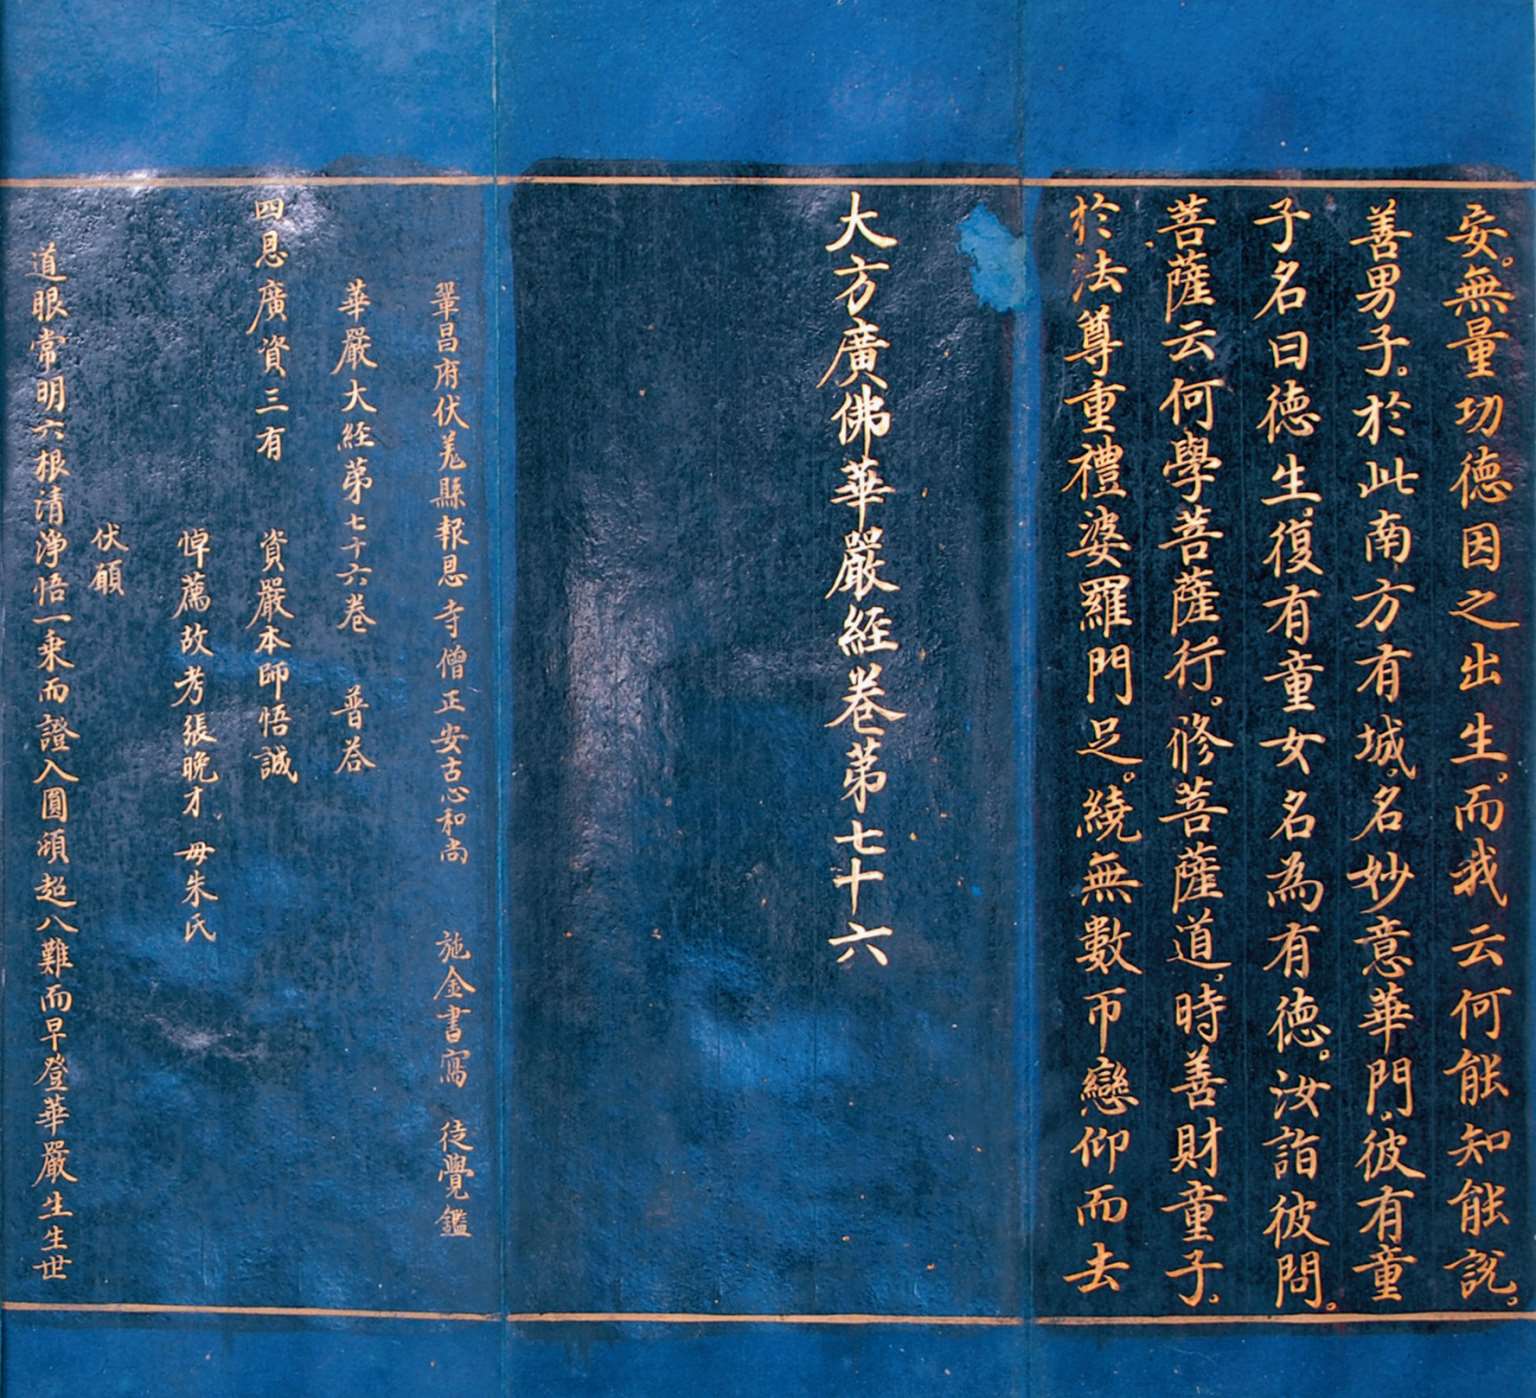 安。無量功德因之出生。而我云何能知能說。
善男子。於此南方有城。名妙意華門。彼有童
子名曰德生。復有童女名為有德。汝詣彼問。
菩薩云何學菩薩行。修菩薩道。時善財童子。
於法尊重禮婆羅門足。繞無數帀戀仰而去
大方廣佛華嚴經卷第七十六
鞏昌府伏羗縣報恩寺僧正安古心和尚 施金書寫 徒覺鑑
華嚴大経苐七十六卷 普荅
四恩廣資三有 資嚴本師悟誠
悼薦故考張晚才 母朱氏
伏願
道眼常明六根清淨悟一乗而證入圓頓超八難而早登華嚴生生世